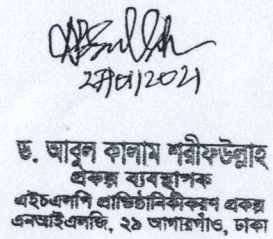 ড. আবুল কালাম শরীফউল্লাহ
প্রকল্প ব্যবস্থাপক
এইচএলপি প্রাতিষ্ঠানিকীকরণ প্রকল্প
এনআইএলজি, ২৯ আগারগাঁও, ঢাকা